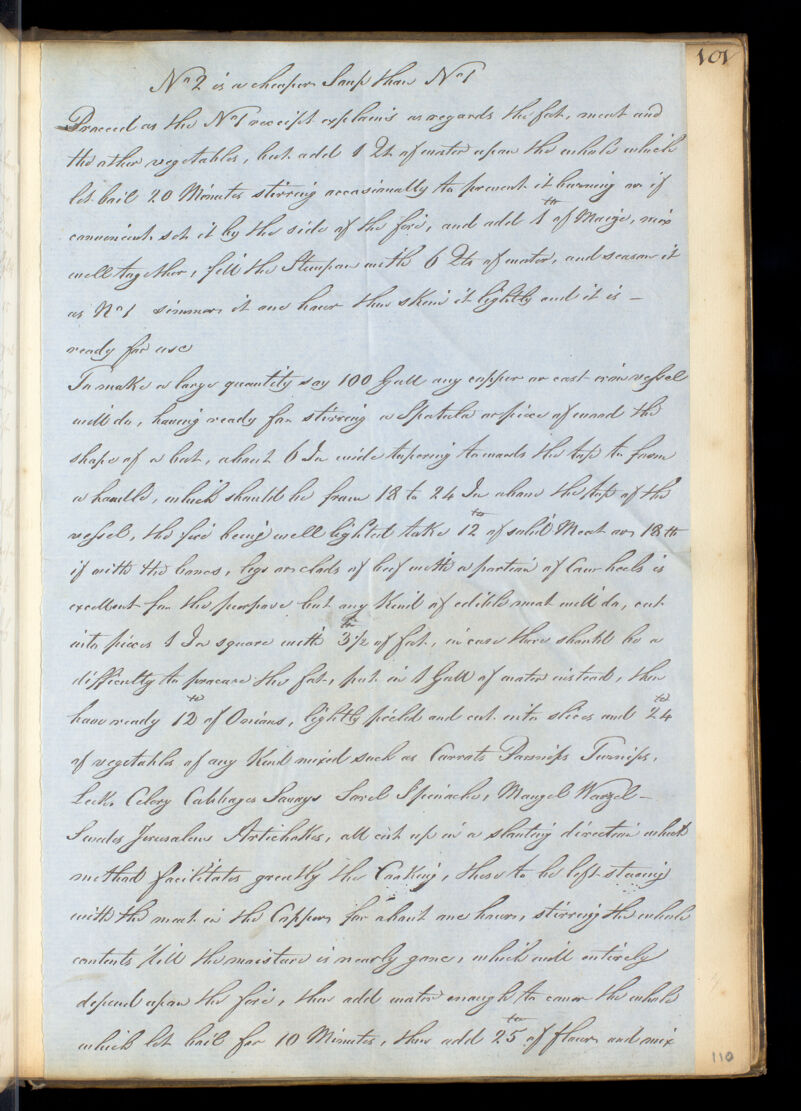 101
No 2 is a cheaper Soup than No 1
Proceed as the No 1 receipt explains as regards the fat, meat and
the other vegetables, but add 1 Qt of water upon the whole which
let boil 20 Minutes stirring occasionally to prevent it burning or if
convenient set it by the side of the fire, and add 1 lb of Maize, mix
well together, fill the Stewpan with 6 Qts of water, and season it
as No 1 simmer it one hour then skim it lightly and it is –
ready for use
To make a large quantity say 100 Gall any copper or cast iron vessel
will do, having ready for stirring a Spatula or piece of wood the
shape of a bat, about 6 In wide tapering towards the top to form
a handle, which should be from 18 to 24 In above the top of the
vessel, the fire being well lighted take 12 lb of solid Meat or 18 lb
if with the bones, legs or clods of beef with a portion of Cow heels is
excellent for the purpose but any Kind of edible meat will do, cut
into pieces 1 In square with 3½ lb of fat, in case there should be a
difficulty to procure the fat, put in 1 Gall of water instead, then
have ready 12 lb of Onions, lightly peeled and cut into slices and 24 lb
of vegetables of any Kind mixed such as Carrots Parsnips Turnips,
Leek, Celery Cabbages Savoys Sorel Spinache, Mangel Warzel –
Swedes Jerusalem Artichokes, all cut up in a slanting direction which
method facilitates greatly the Cooking, these to be left stewing
with the meat in the Copper for about one hour, stirring the whole
contents till the moisture is nearly gone, which will entirely
depend upon the fire, then add water enough to cover the whole
which let boil for 10 Minutes, then add 25 lb of flour and mix
110